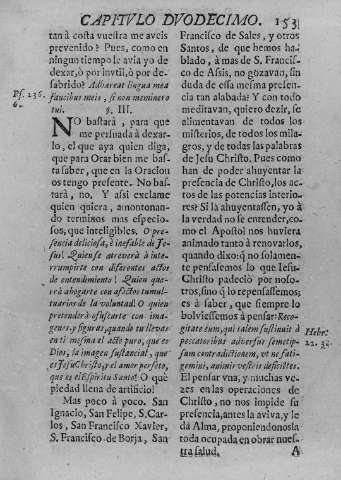 CAPITVLO DVODECIMO. 153
tan à costa vuestra me aveis
prevenido? Pues, como en
ningun tiempo le avia yo de
dexar, ò por invtil, ò por de-
sabrido? Adhæreat lingua mea
faucibus meis, si non meminero
tui.
Ps. 236.
6.
§. III.
NO bastarà, para que
me persuada à dexar-
lo, el que aya quien diga,
que para Orar bien me bas-
ta saber, que en la Oracion
os tengo presente. No bas-
tarà, no, Y assi exclame
quien quiera, amontonan-
do terminos mas especio-
sos, que inteligibles. O pre-
sencia deliciosa, è inefable de Je-
sus! Quien se atreverà à inte-
rrumpirte con diferentes actos
de entendimiento! Quien que-
rà ahogarte con afectos tumul-
tuarios de la voluntad! O quien
pretenderà ofuscarte con ima-
genes, y figuras, quando tu llevas
en ti mesma el acto puro, que es
Dios, la imagen sustancial, que
es JesuChristo, y el amor perfeto,
que es el Espiritu Santo! O què
piedad llena de artificio!
Mas poco à poco. San
Ignacio, San Felipe, S. Car-
los, San Francisco Xavier,
S. Francisco de Borja, San
Francisco de Sales, y otros
Santos, de que hemos ha-
blado, à mas de S. Francis-
co de Assis, no gozavan, sin
duda de essa mesma presen-
cia tan alabada? Y con todo
meditavan, quiero dezir, se
alimentavan de todos los
misterios, de todos los mila-
gros, y de todas las palabras
de Jesu Christo. Pues como
han de poder ahuyentar la
presencia de Christo, los ac-
tos de las potencias interio-
res? Si la ahuyentassen, yo à
la verdad no se entender, co-
mo el Apostol nos huviera
animado tanto à renovarlos,
quando dixo: q̃ no solamen-
te pensassemos lo que Iesu-
Christo padeciò por noso-
tros, sino q̃ lo repensassemos;
es à saber, que siempre lo
bolviessemos à pensar: Reco-
gitate eum, qui talem sustinuit à
peccatoribus adversus semetip-
sum contradictionem, vt ne fati-
gemini, animis vestris deficientes.
Hebr.
El pensar vna, y muchas ve-
zes en las operaciones de
Christo, no nos impide su
presencia, antes la aviva, y le
dà Alma, proponiendonosla
toda ocupada en obrar nues-
tra salud. A